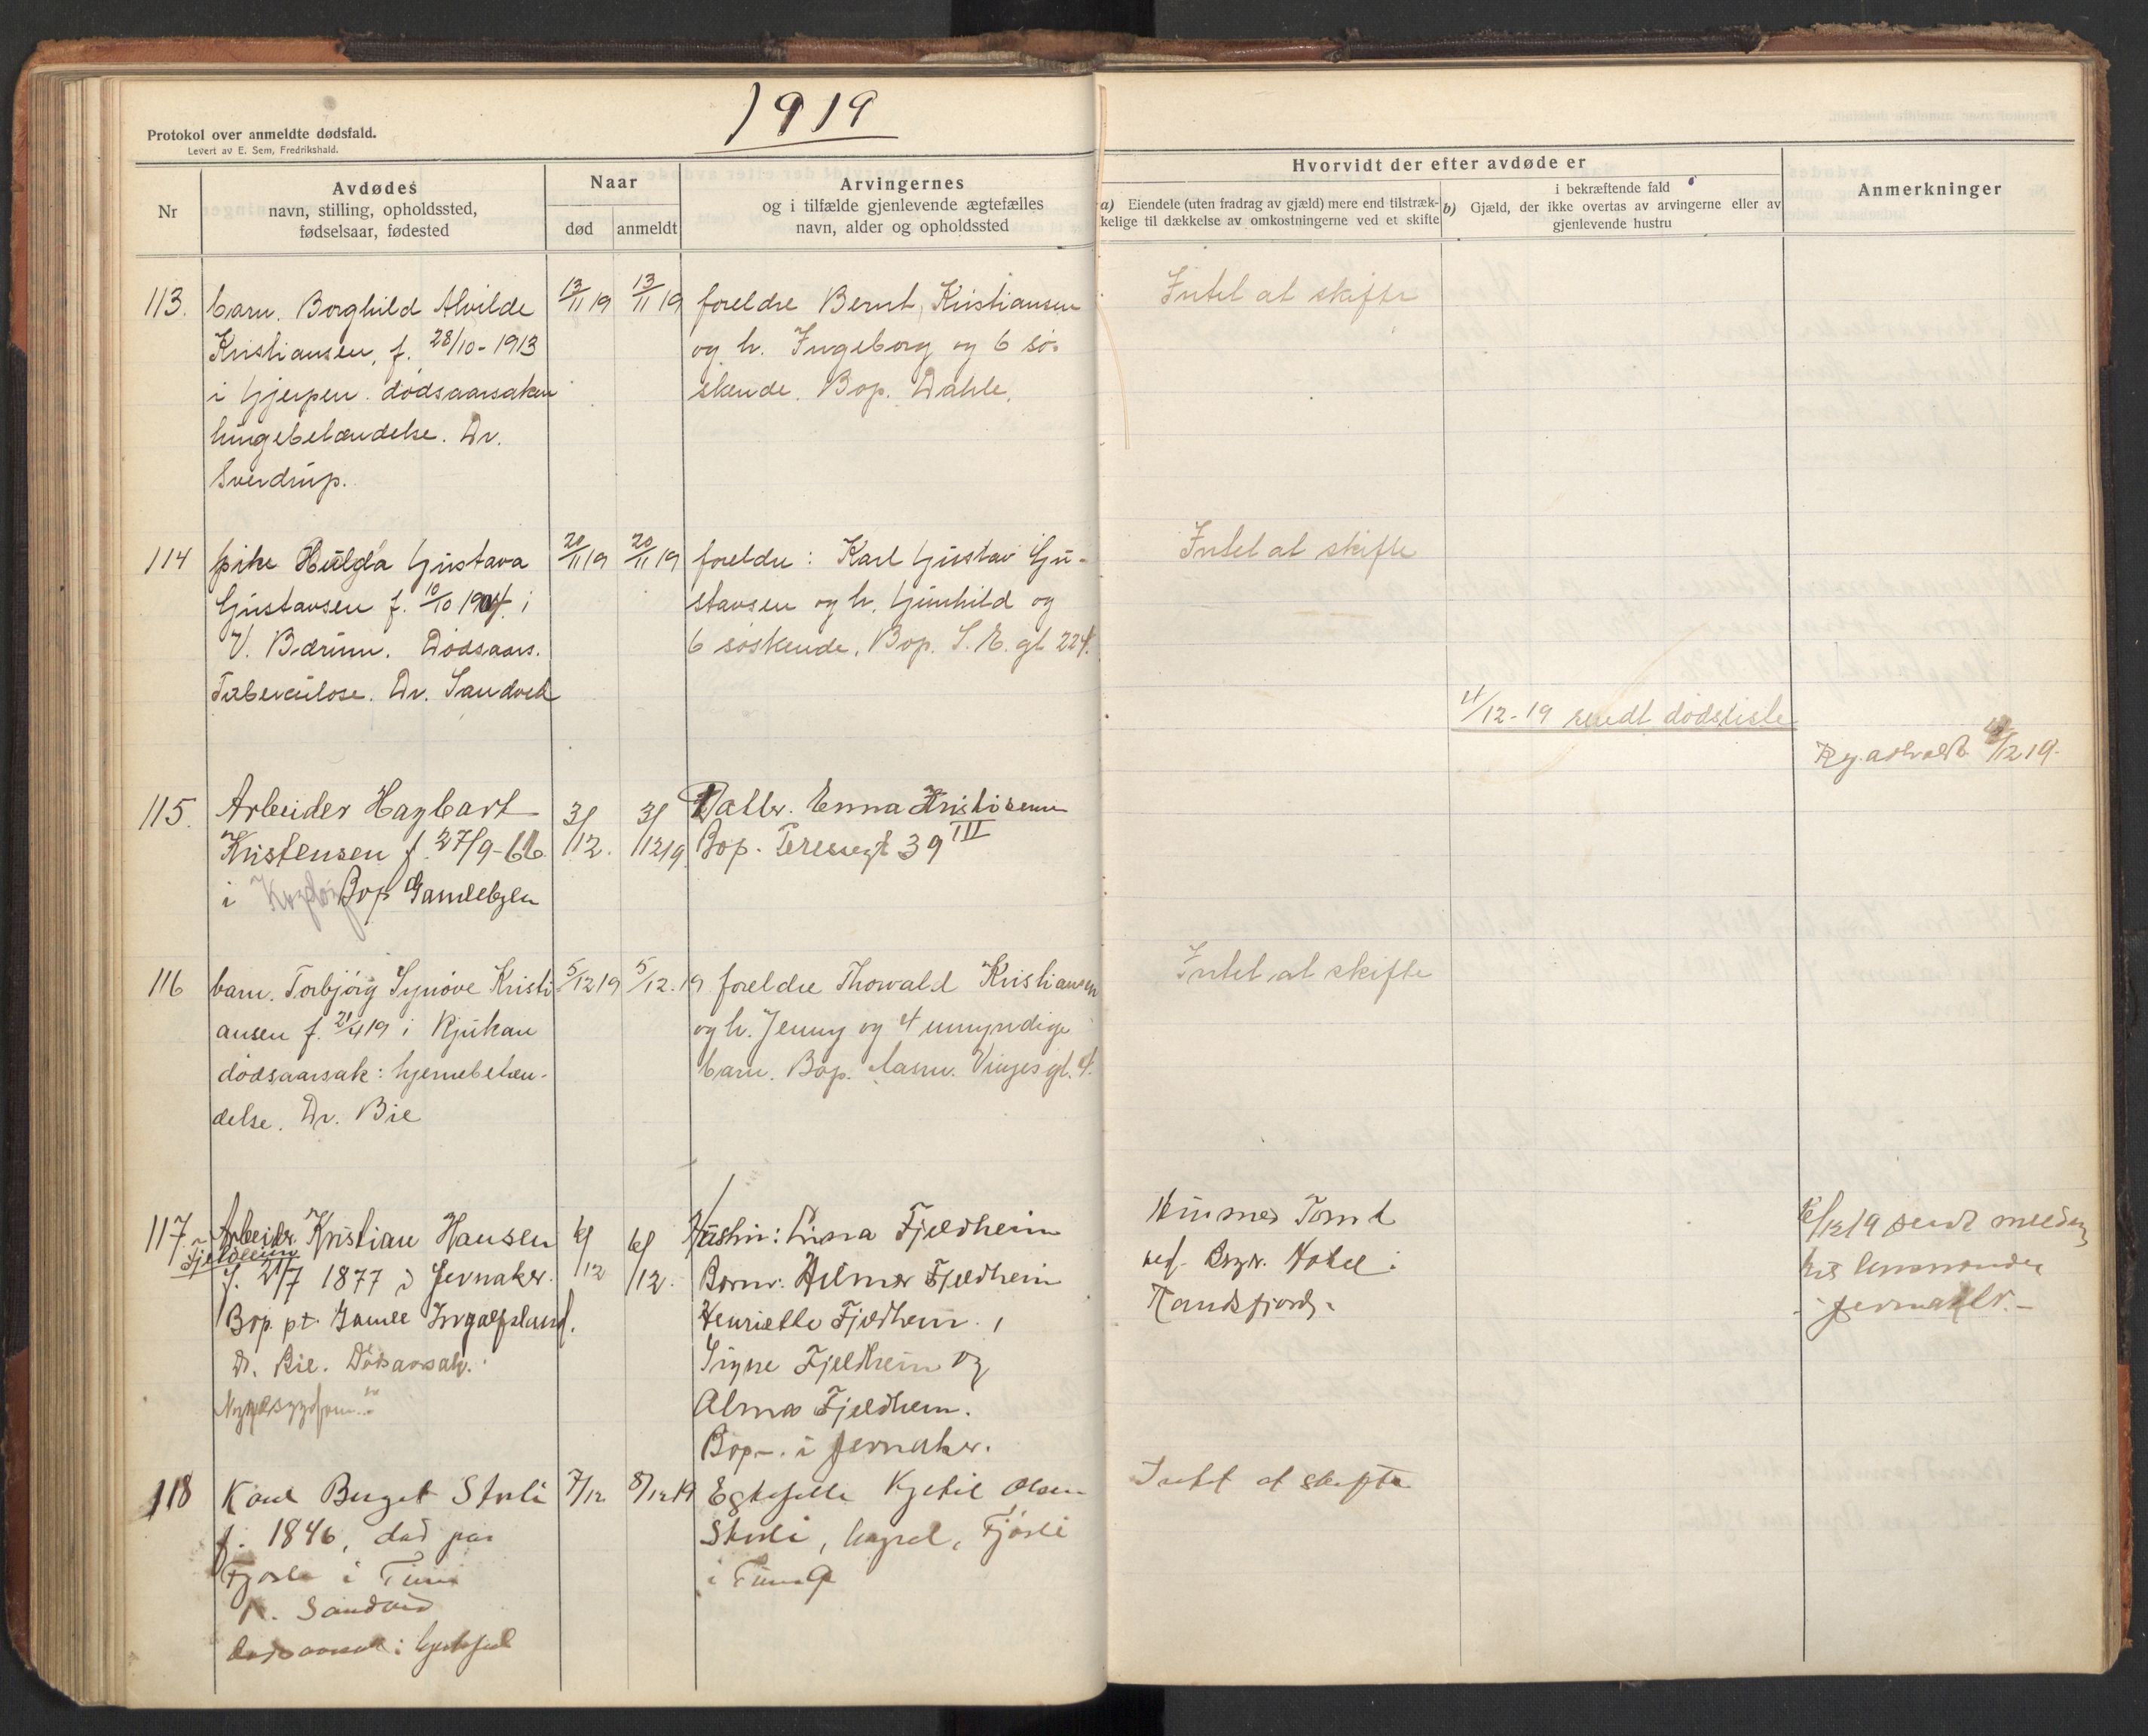 1919
Protokol over anmeldte dødsfald.
Levert av E. Sem, Fredrikshald.
Nr
Avdødes
navn, stilling, opholdssted,
fødselsaar, fødested
Naar
død
anmeldt
Arvingernes
og i tilfælde gjenlevende ægtefælles
navn, alder og opholdssted
Hvorvidt der efter avdøde er
a) Eiendele (uten fradrag av gjæld) mere end tilstræk-
kelige til dækkelse av omkostningerne ved et skifte
i bekræftende fald
b) Gjæld, der ikke overtas av arvingerne eller av
gjenlevende hustru
Anmerkninger
113. barn. Borghild Alvilde
Kristiansen, f. 28/10-1913
i Gjerpen. dødsaarsaken
lungebetændelse. Dr.
Sverdrup.
13/11 19
13/11 19
foreldre Bernt Kristiansen
og h. Ingeborg og 6 sø-
skende. Bop. Dahle.
Intet at skifte
114 pike Hulda Gustava
Gustavsen f. 10/10 1904 i
V. Bærum. Dødsaars.
Tuberculose. Dr. Sandvek
20/11 19
20/11 19
foreldre: Karl Gustav Gu-
stavsen og h. Gunhild og
6 søskende. Bop. S. E. gt 224.
Intet at skifte
4/12-19 sendt dødsliste
/12 19.
115. Arbeider Hagbart
Kristensen f. 27/9-66
i Bop Gamlebyen
3/12.
3/12 19
Datter. Enna Kristisenn
Bop. Teressegt 39 III
116 barn. Torbjørg Synøve Kristi
ansen f. 21/4 19 i Rjukan
dødsaarsak: hjernebetæn-
delse. Dr. Bie
5/12 19
5/12.19
foreldre Thorvald Kristiansen
og h. Jenny og 4 umyndige
barn. Bop. Aasm. Vinjesgt. 4.
Intet at skifte
117. Arbeider Kristian Hansen
Fjeldheim
f. 21/7 1877 i Jevnaker.
Bop. pt. Gamle Ingolfsland.
Dr. Bie. Dødsaarsak.
6/12
6/12.
Hustru: Anna Fjeldheim
Barn: Hilmar Fjeldheim
Henriette Fjeldheim,
Signe Fjeldheim og
Alma Fjeldheim.
Bop. i Jevnaker.
Tomt
ved Hotel i
Randsfjord.
/12 19 sendt
Jevnaker.
118 Kone Berget Stuli
f. 1846, død paa
Fjøsli i Tinn
Dr. Sandved
7/12
8/12 19
Egtefelle Kjetil Olsen
Stuli, Fjøsli
i Tinn
Intet at skifte